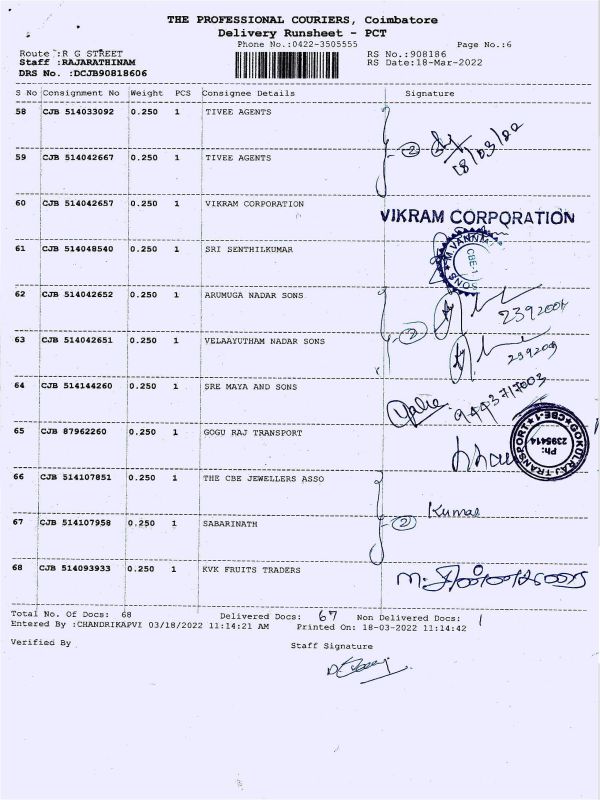 THE PROFESSIONAL COURIERS, Coimbatore
Delivery Runsheet - PCT
Phone No.:0422-3505555 Page No.:6
Route :R G STREET RS No.:908186
Staff :RAJARATHINAM RS Date:18-Mar-2022
DRS No. :DCJB90818606
S No Consignment No Weight PCS Consignee Details Signature
58 CJB 514033092 0.250 1 TIVEE AGENTS
2 18/03/22
59 CJB 514042667 0.250 1 TIVEE AGENTS
60 CJB 514042657 0.250 1 VIKRAM CORPORATION
VIKRAM CORPORATION
61 CJB 514048540 0.250 1 SRI SENTHILKUMAR
CBE-1 SONS
62 CJB 514042652 0.250 1 ARUMUGA NADAR SONS
2392009
63 CJB 514042651 0.250 1 VELAAYUTHAM NADAR SONS
2
2392009
64 CJB 514144260 0.250 1 SRE MAYA AND SONS
9443717003
65 CJB 87962260 0.250 1 GOGU RAJ TRANSPORT
GOKULRAJ TRANSPORT CBE-1 Ph: 2395414
66 CJB 514107851 0.250 1 THE CBE JEWELLERS ASSO
2 Kumar
67 CJB 514107958 0.250 1 SABARINATH
68 CJB 514093933 0.250 1 KVK FRUITS TRADERS
Total No. Of Docs: 68 Delivered Docs: 67 Non Delivered Docs: 1
Entered By :CHANDRIKAPVI 03/18/2022 11:14:21 AM Printed On: 18-03-2022 11:14:42
Verified By Staff Signature